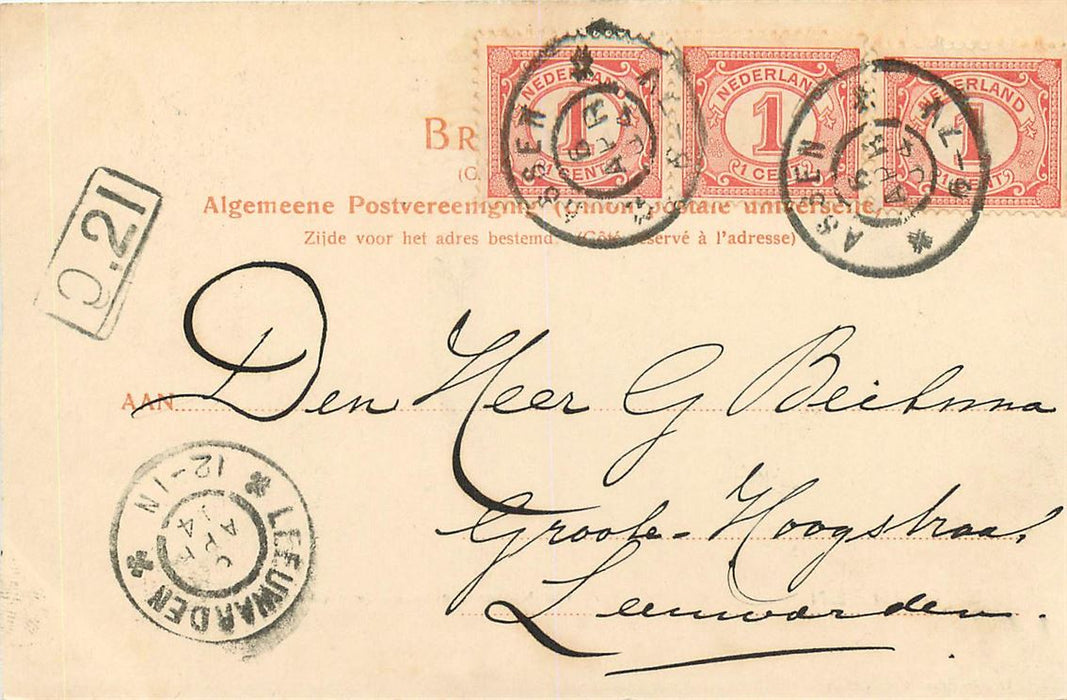 NEDERLAND
1
1 CENT
NEDERLAND
1
1 CENT
NEDERLAND
1
ASSEN
6 APR 04
ASSEN
6 APR 04
Algemeene Postvereeniging (Union postale universelle)
Zijde voor het adres bestemd. (Côté réservé à l'adresse)
AAN
Den Heer G
Groote-Hoogstraat
Leeuwarden.
LEEUWARDEN
12-1N
APR